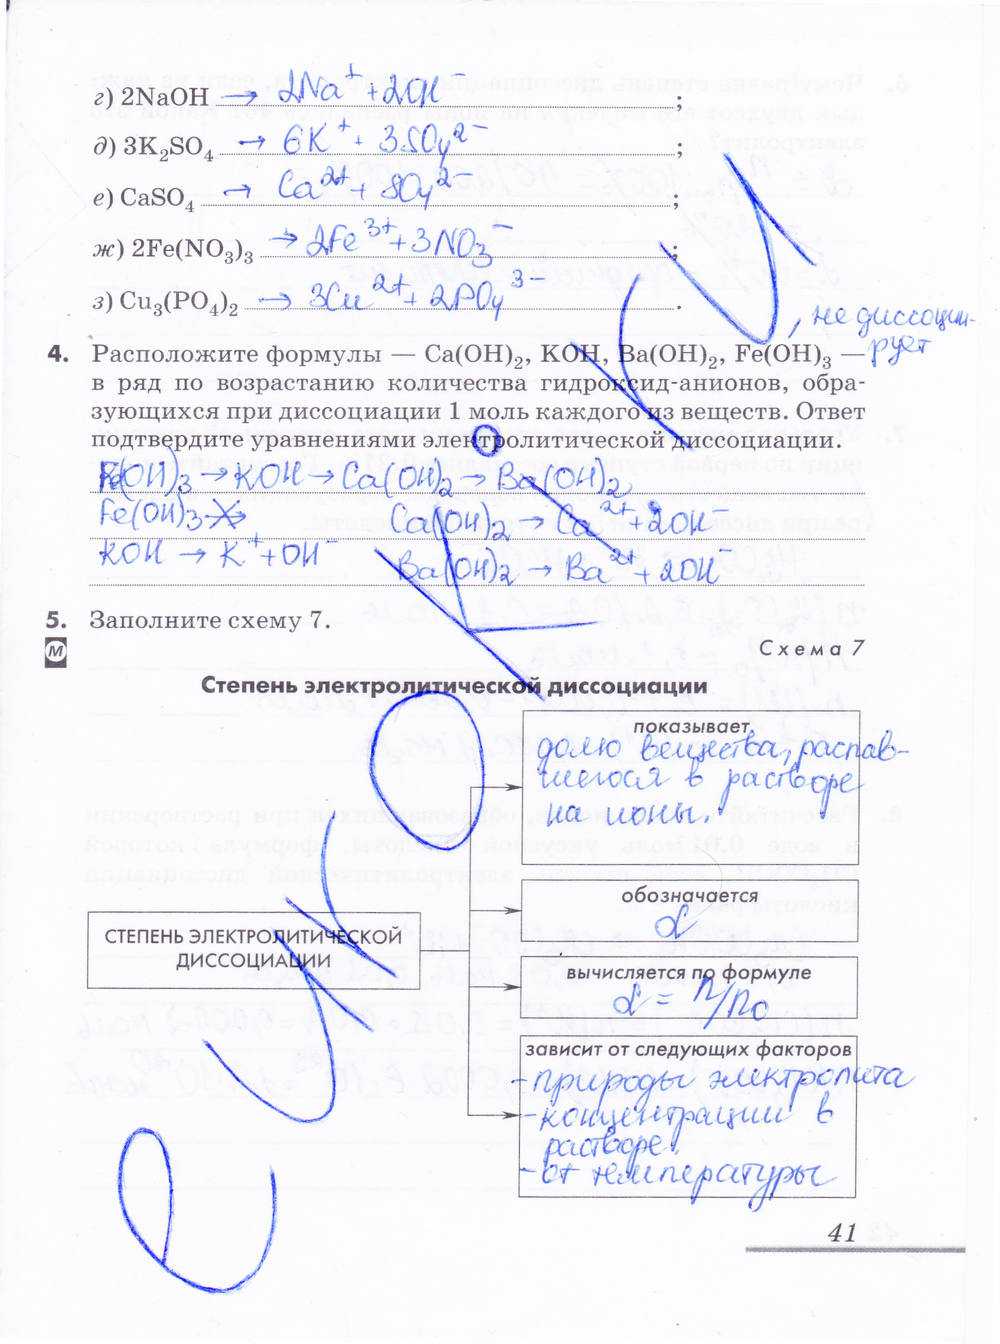 г) 2NaOH → 2Na⁺ + 2OH⁻ ;
д) 3K₂SO₄ → 6K⁺ + 3SO₄²⁻ ;
е) CaSO₄ → Ca²⁺ + SO₄²⁻ ;
ж) 2Fe(NO₃)₃ → 2Fe³⁺ + 3NO₃⁻ ;
з) Cu₃(PO₄)₂ → 3Cu²⁺ + 2PO₄³⁻ .
, не диссоции-
рует
4. Расположите формулы — Ca(OH)₂, KOH, Ba(OH)₂, Fe(OH)₃ —
в ряд по возрастанию количества гидроксид-анионов, обра-
зующихся при диссоциации 1 моль каждого из веществ. Ответ
подтвердите уравнениями электролитической диссоциации.
Fe(OH)₃ → KOH → Ca(OH)₂ → Ba(OH)₂
Fe(OH)₃ ↛ Ca(OH)₂ → Ca²⁺ + 2OH⁻
KOH → K⁺ + OH⁻ Ba(OH)₂ → Ba²⁺ + 2OH⁻
5. Заполните схему 7.
М
Схема 7
Степень электролитической диссоциации
показывает
долю вещества, распав-
шегося в растворе
на ионы.
обозначается
α
СТЕПЕНЬ ЭЛЕКТРОЛИТИЧЕСКОЙ
ДИССОЦИАЦИИ
вычисляется по формуле
α = n/n₀
зависит от следующих факторов
- природы электролита
- концентрации в
растворе.
- от температуры
41